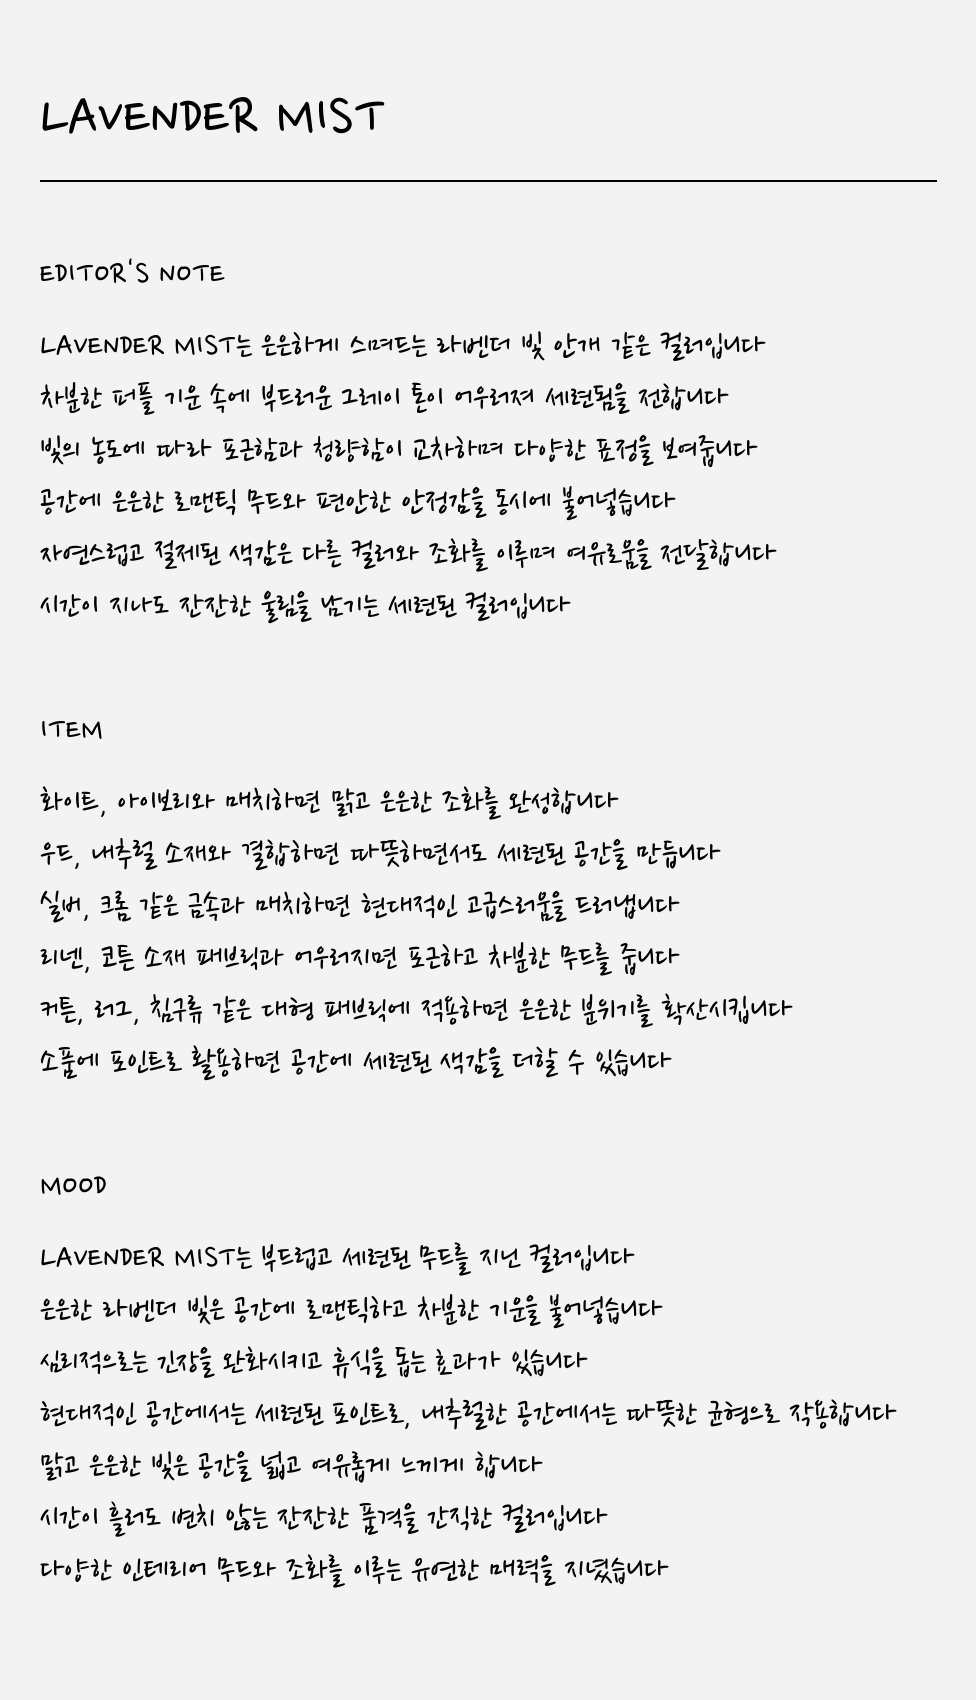 LAVENDER MIST
EDITOR'S NOTE
LAVENDER MIST는 은은하게 스며드는 라벤더 빛 안개 같은 컬러입니다
차분한 퍼플 기운 속에 부드러운 그레이 톤이 어우러져 세련됨을 전합니다
빛의 농도에 따라 포근함과 청량함이 교차하며 다양한 표정을 보여줍니다
공간에 은은한 로맨틱 무드와 편안한 안정감을 동시에 불어넣습니다
자연스럽고 절제된 색감은 다른 컬러와 조화를 이루며 여유로움을 전달합니다
시간이 지나도 잔잔한 울림을 남기는 세련된 컬러입니다
ITEM
화이트, 아이보리와 매치하면 맑고 은은한 조화를 완성합니다
우드, 내추럴 소재와 결합하면 따뜻하면서도 세련된 공간을 만듭니다
실버, 크롬 같은 금속과 매치하면 현대적인 고급스러움을 드러냅니다
리넨, 코튼 소재 패브릭과 어우러지면 포근하고 차분한 무드를 줍니다
커튼, 러그, 침구류 같은 대형 패브릭에 적용하면 은은한 분위기를 확산시킵니다
소품에 포인트로 활용하면 공간에 세련된 색감을 더할 수 있습니다
MOOD
LAVENDER MIST는 부드럽고 세련된 무드를 지닌 컬러입니다
은은한 라벤더 빛은 공간에 로맨틱하고 차분한 기운을 불어넣습니다
심리적으로는 긴장을 완화시키고 휴식을 돕는 효과가 있습니다
현대적인 공간에서는 세련된 포인트로, 내추럴한 공간에서는 따뜻한 균형으로 작용합니다
맑고 은은한 빛은 공간을 넓고 여유롭게 느끼게 합니다
시간이 흘러도 변치 않는 잔잔한 품격을 간직한 컬러입니다
다양한 인테리어 무드와 조화를 이루는 유연한 매력을 지녔습니다